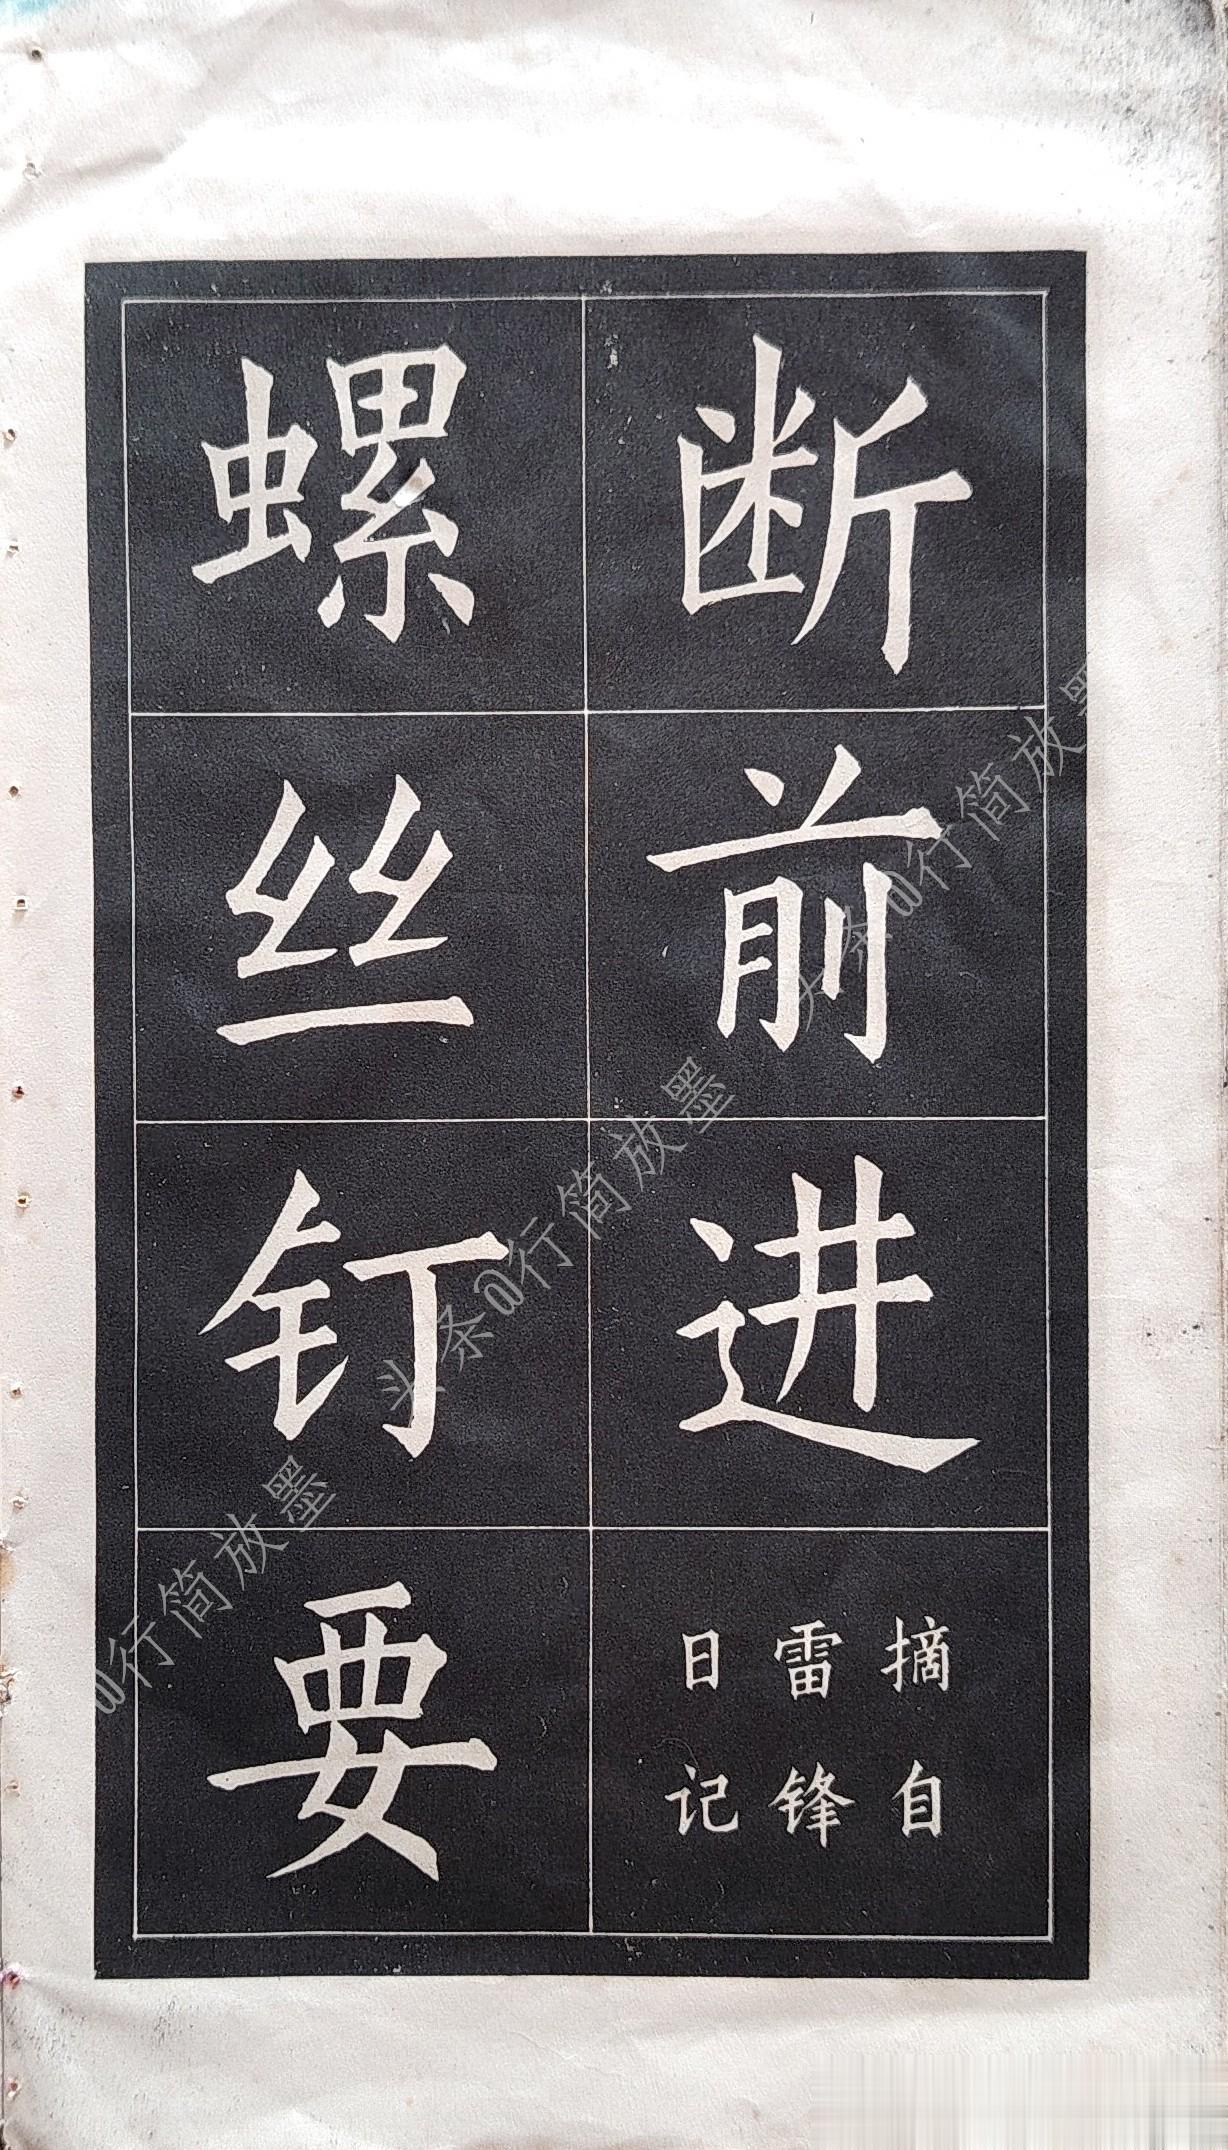 断前进
摘自
雷锋
日记
螺丝钉要
头条@行简放墨
头条@行简放墨
@行简放墨